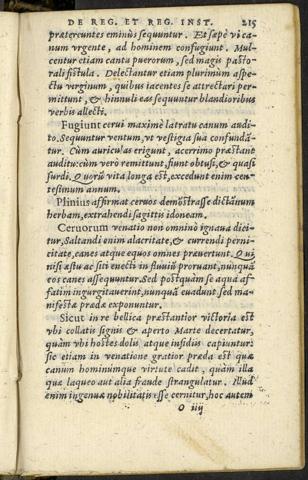 DE REG. ET REG. INST. 215
prætereuntes eminùs sequuntur. Et sæpè vi ca-
num vrgente, ad hominem confugiunt. Mul-
centur etiam cantu puerorum, sed magis pasto-
rali fistula. Delectantur etiam plurimùm aspe-
ctu virginum, quibus iacentes se attrectari per-
mittunt, & hinnuli eas sequuntur blandioribus
verbis allecti.
Fugiunt cerui maximè latratu canum audi-
to. Sequuntur ventum, vt vestigia sua confundã-
tur. Cùm auriculas erigunt, acerrimo præstant
auditu: cùm verò remittunt, fiunt obtusi, & quasi
surdi. Quorũ vita longa est, excedunt enim cen-
tesimum annum.
Plinius affirmat ceruos demõstrasse dictãnum
herbam, extrahendis sagittis idoneam.
Ceruorum venatio non omnino ignaua dici-
tur, Saltandi enim alacritate, & currendi perni-
citate, canes atque equos omnes præuertunt. Qui
nisi æstu ac siti enecti in fluuiũ proruant, nunquã
eos canes assequuntur. Sed postquãm se aqua af-
fatim ingurgitauerint, nunquã euadunt sed ma-
nifestæ prædæ exponuntur.
Sicut in re bellica præstantior victoria est
vbi collatis signis & aperto Marte decertatur,
quàm vbi hostes dolis atque insidiis capiuntur:
sic etiam in venatione gratior præda est quæ
canum hominúmque virtute cadit, quàm illa
quæ laqueo aut alia fraude strangulatur. Illud
enim ingenuæ nobilitatis esse cernitur, hoc autem
O iiij